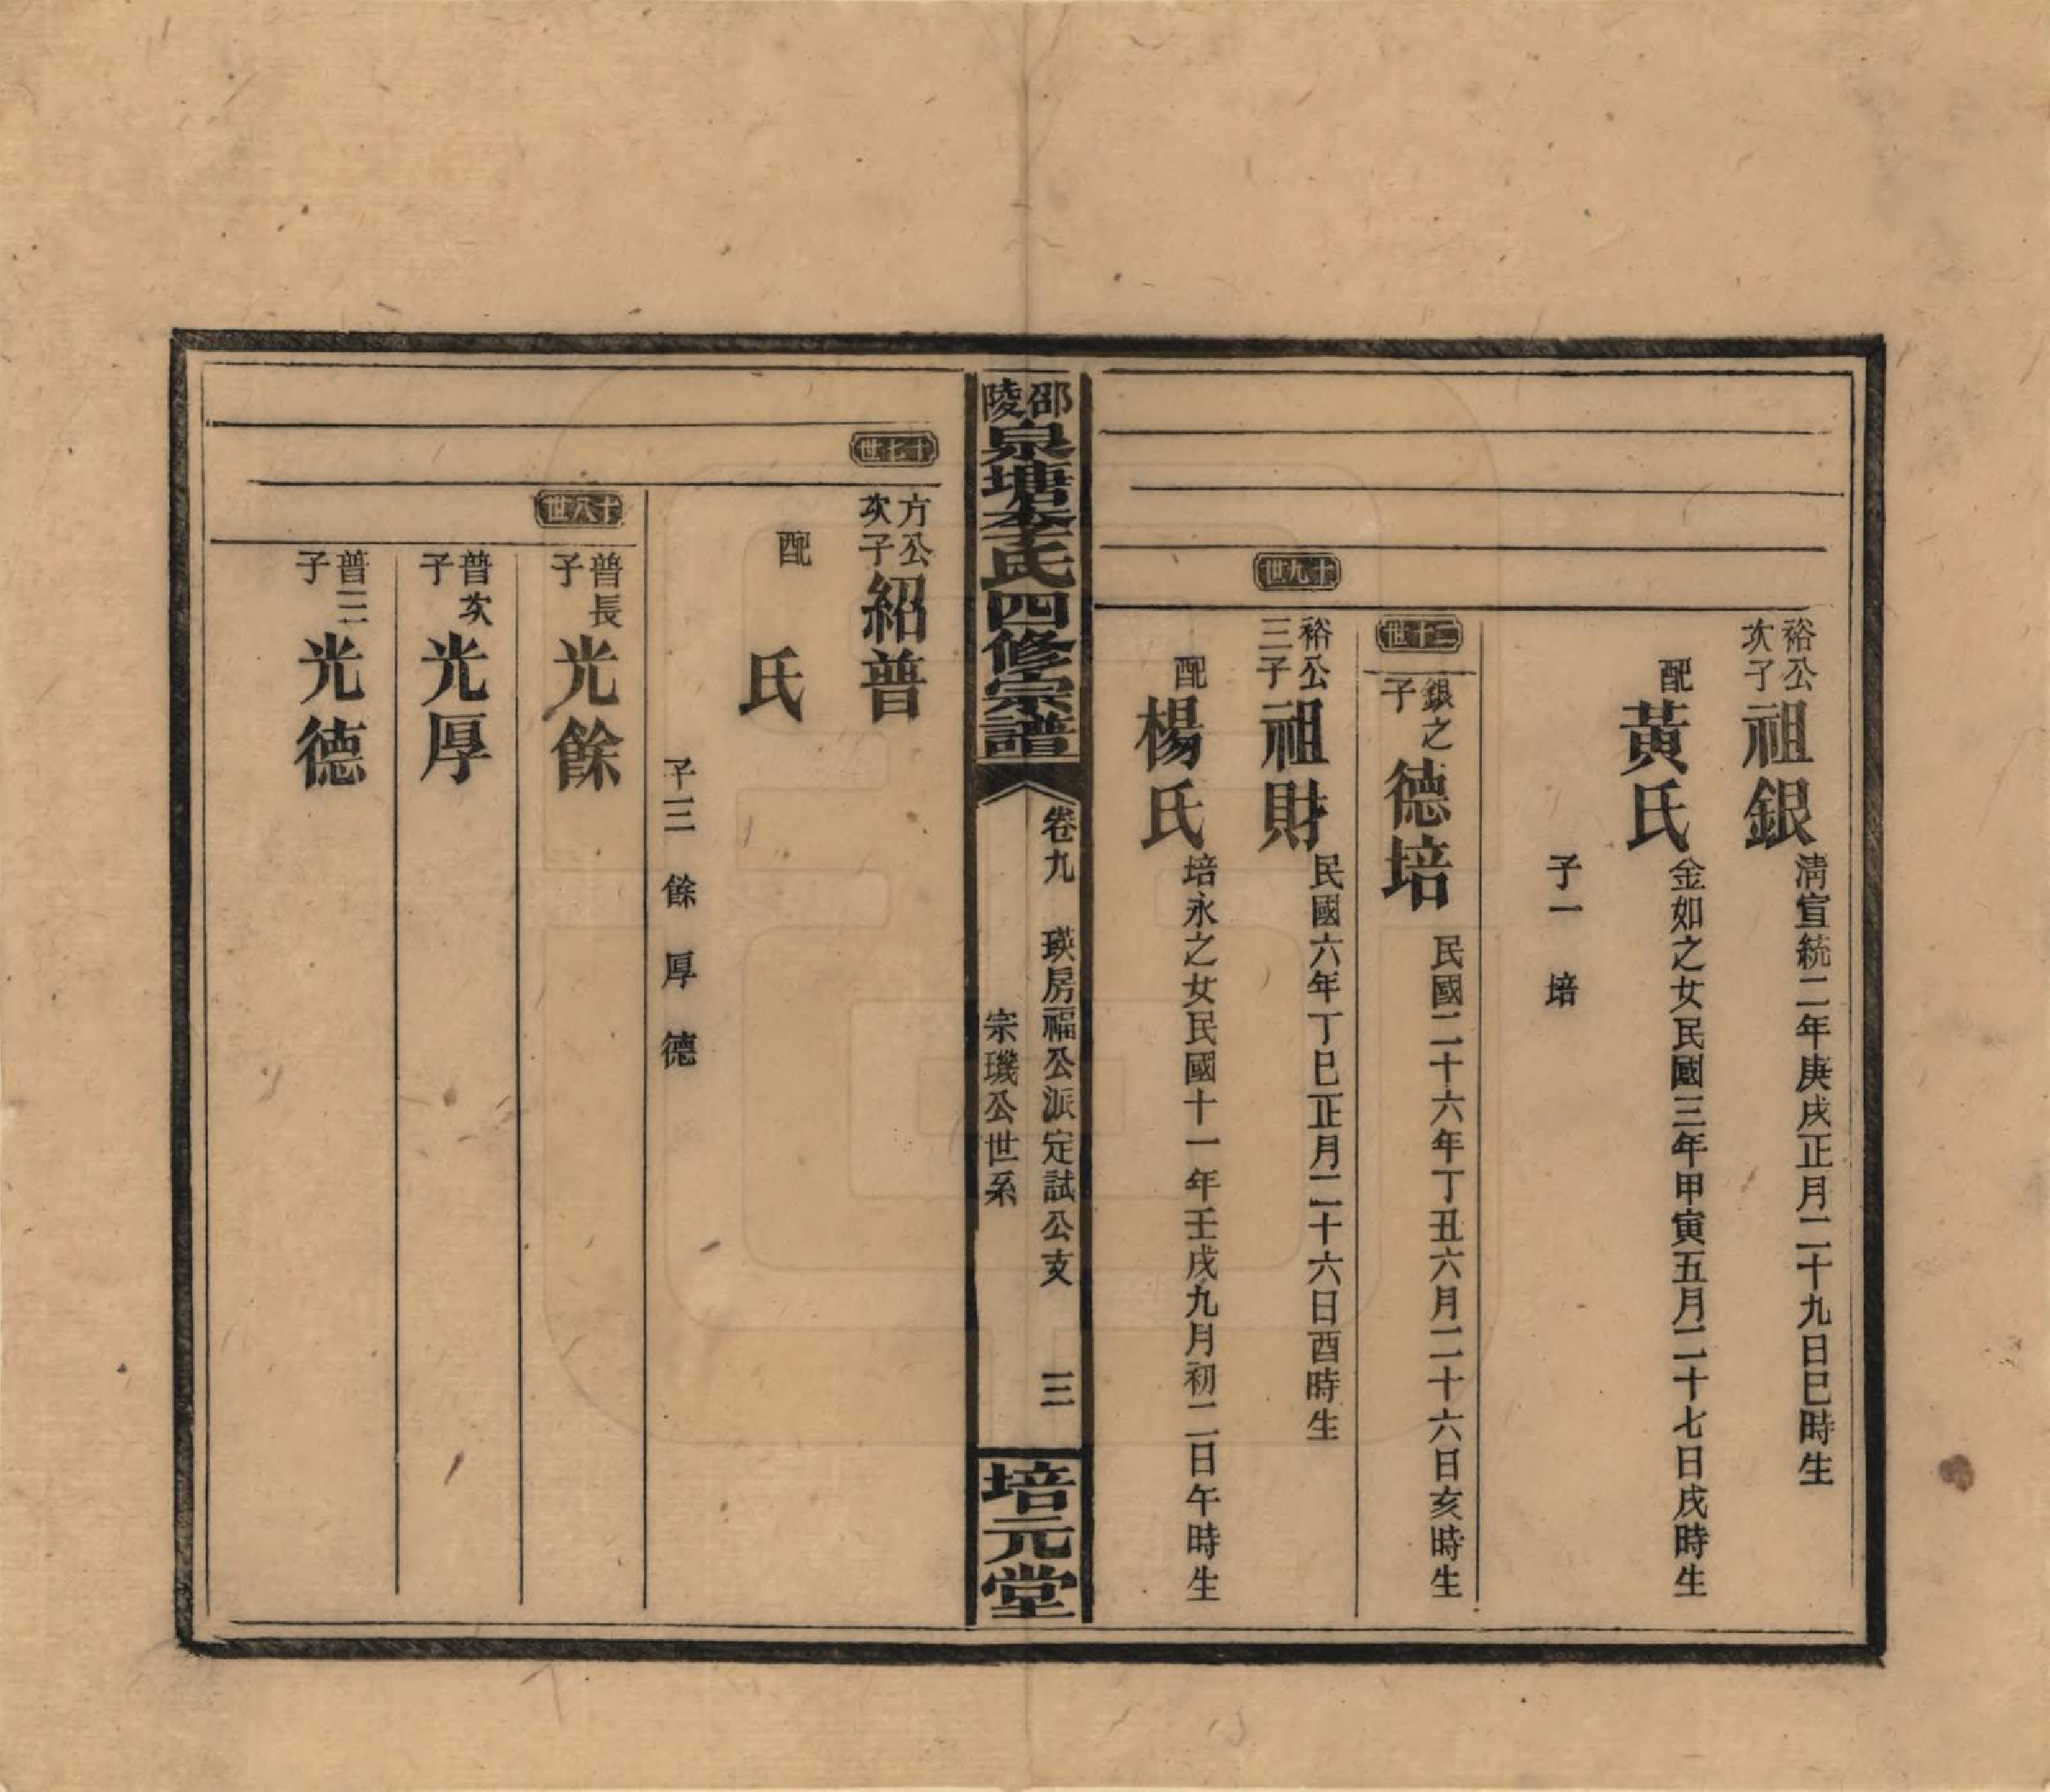 裕公次子祖銀 淸宣統二年庚戌正月二十九日巳時生
配黃氏 金如之女民國三年甲寅五月二十七日戌時生
子一 培
二十世
銀之子德培 民國二十六年丁丑六月二十六日亥時生
十九世
裕公三子祖財 民國六年丁巳正月二十六日酉時生
配楊氏 培永之女民國十一年壬戌九月初二日午時生
邵陵泉塘李氏四修宗譜
卷九 瑛房福公派定試公支 三
宗璣公世系
培元堂
十七世
方公次子紹普
配 氏
子三 餘 厚 德
十八世
普長子光餘
普次子光厚
普三子光德